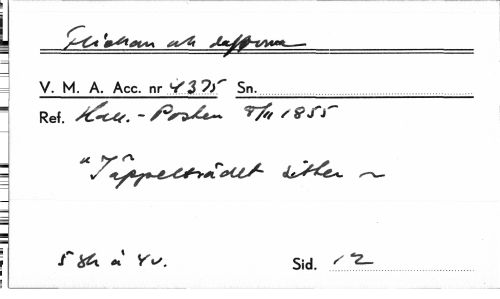 Flickan och
V. M. A. Acc. nr 4375 Sn.
Ref. Hall.-Posten 8/11 1855
"I äppelträdet sitter ~
5 str à 4 v. Sid. 12